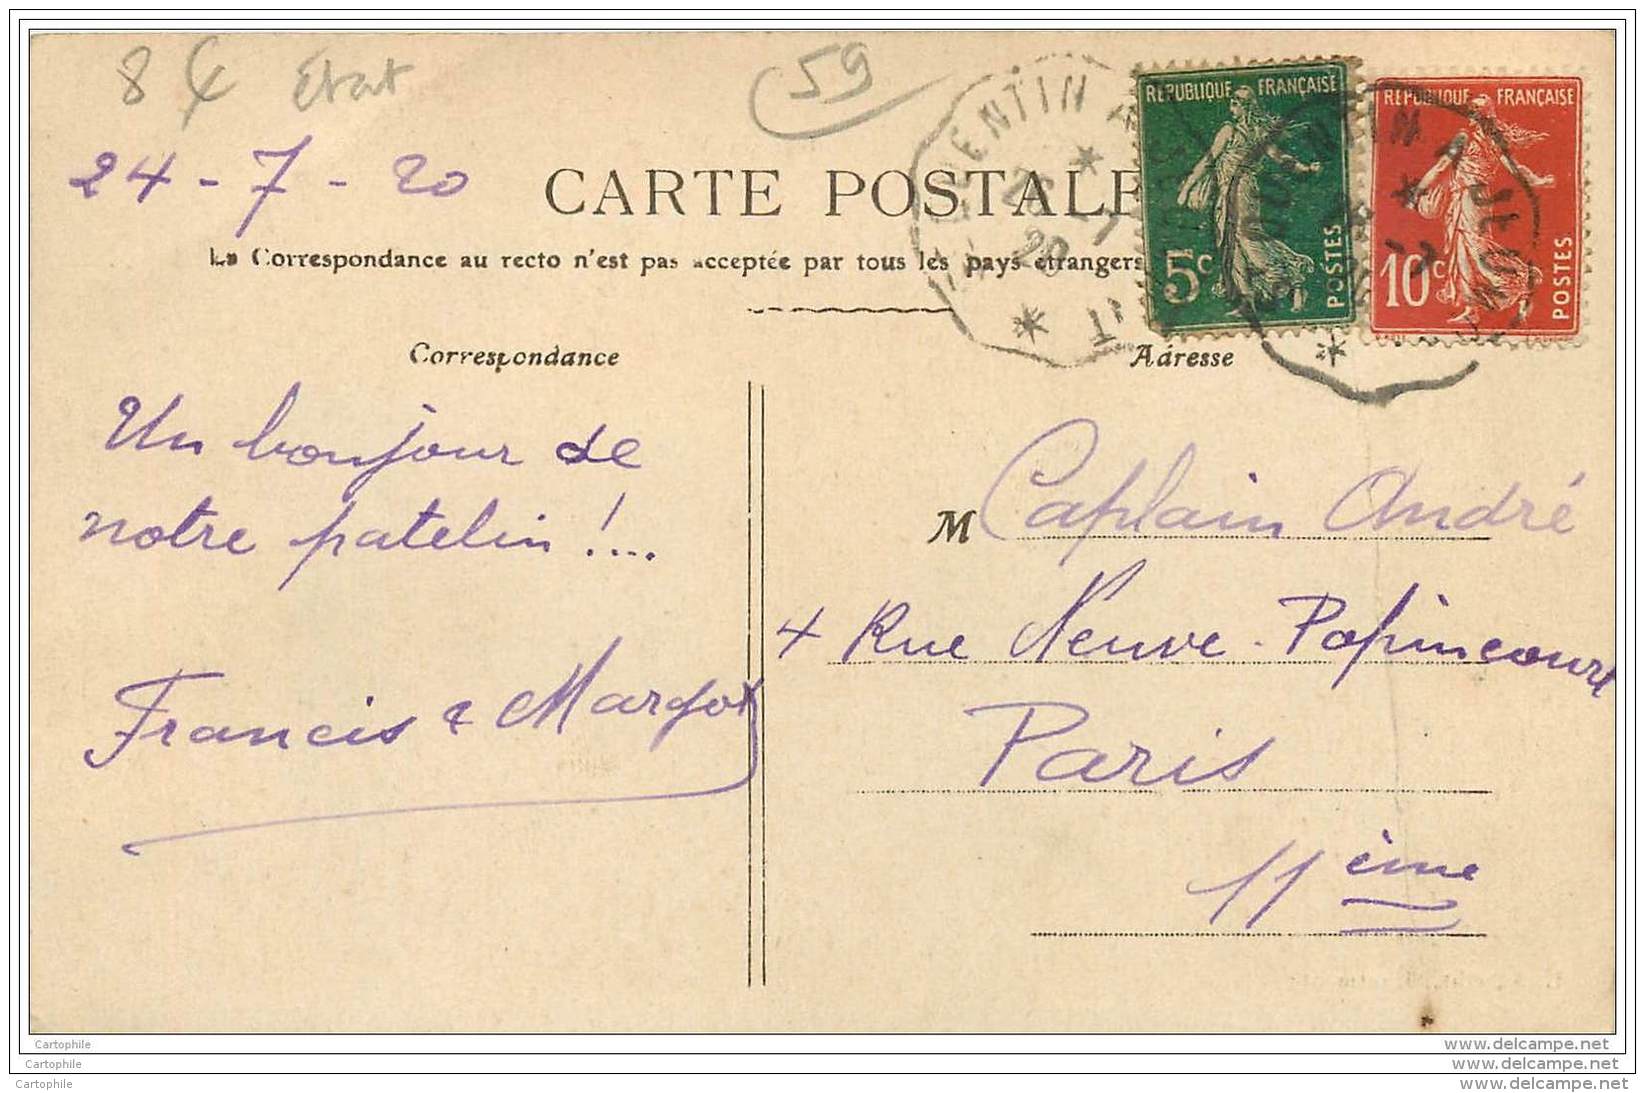 8 € Etat
59
24-7-20
CARTE POSTALE
La Correspondance au recto n'est pas acceptée par tous les pays étrangers
RÉPUBLIQUE FRANÇAISE
5c
POSTES
RÉPUBLIQUE FRANÇAISE
10c
POSTES
Correspondance
Adresse
Un bonjour de
notre patelin !....
Francis & Margot
M Caplain André
4 Rue Neuve-Popincourt
Paris
11ème
Cartophile
Cartophile
Cartophile
www.delcampe.net
www.delcampe.net
www.delcampe.net